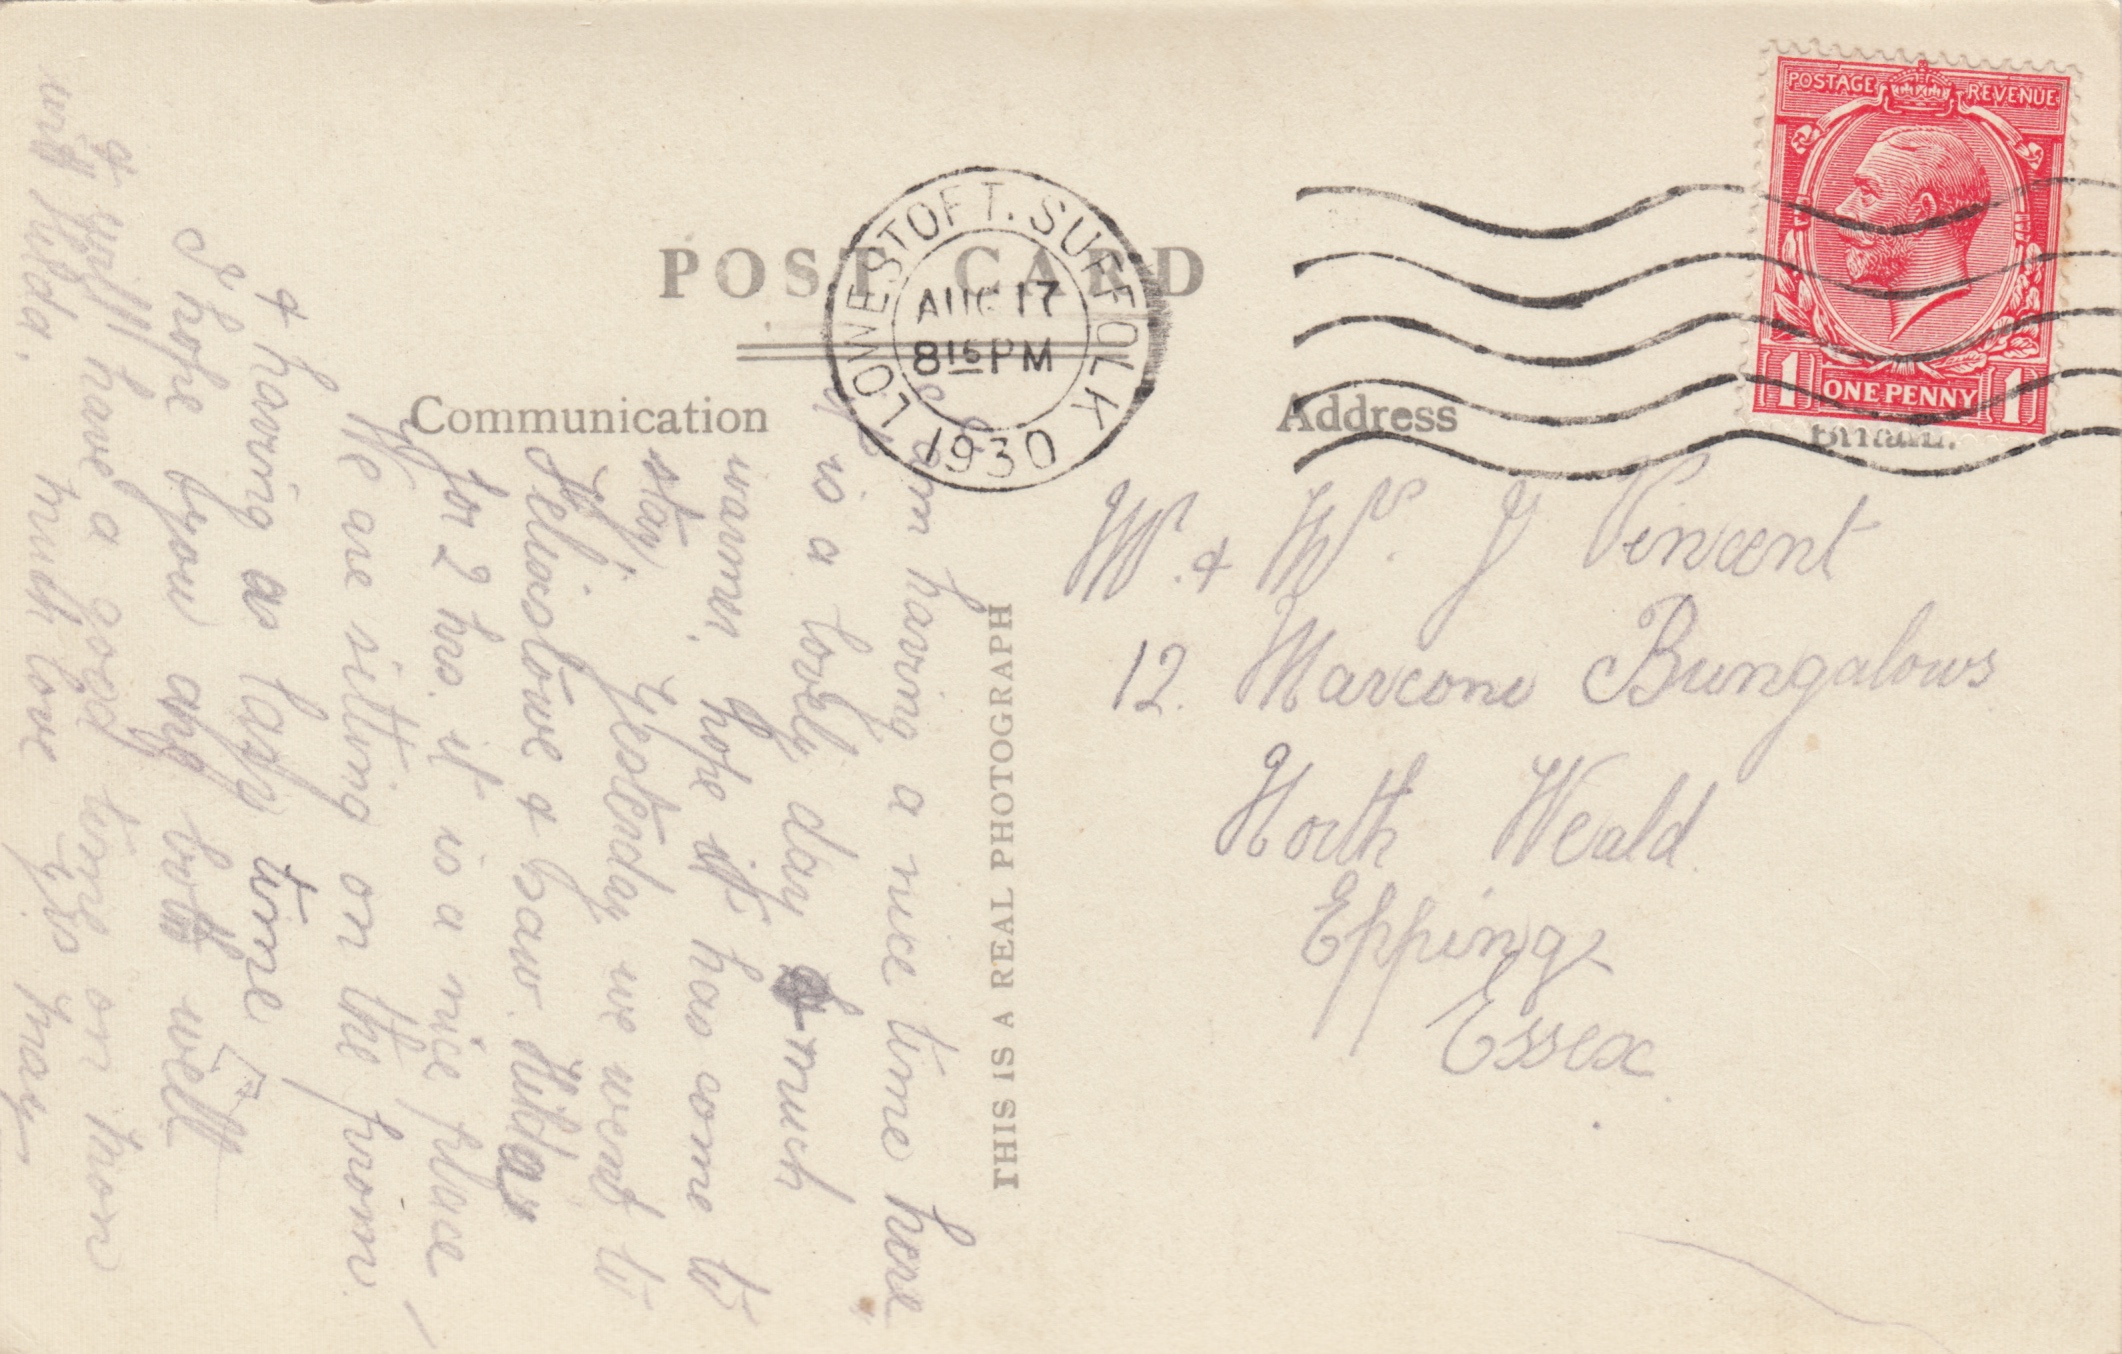 POST CARD
LOWESTOFT. SUFFOLK
AUG 17
815 PM
1930
POSTAGE REVENUE
1 ONE PENNY 1
Communication
I am having a nice time here,
it is a lovely day & much
warmer, hope it has come to
stay.
Yesterday we went to
Felixstowe & saw Hildas
for 2 hrs. it is a nice place
We are sitting on the prom.
& having a lazy time
I hope you are both well
& will have a good time on Mon
with Hilda.
much love
THIS IS A REAL PHOTOGRAPH
Address
Mr. & Mrs. J Vincent
12. Marconi Bungalows
North Weald
Epping
Essex